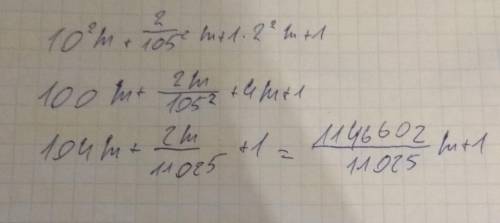 10² m + 2/105² m + 1 · 2² m + 1
100 m + 2m/105² + 4m + 1
104 m + 2m/11025 + 1 = 1146602/11025 m + 1